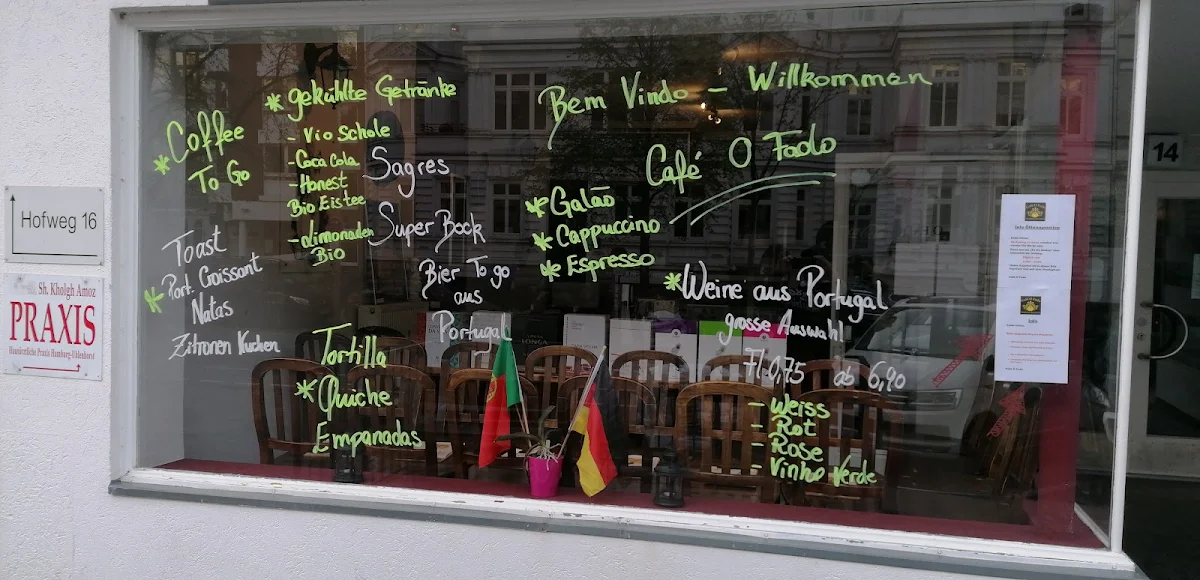 Bem Vindo - Willkommen
Café O Fado
* Coffee
To Go
* gekühlte Getränke
- Vio Schole
- Coca Cola
- Honest
Bio Eistee
- Limonaden
Bio
Sagres
Super Bock
Bier To go
aus
Portugal
* Galão
* Cappuccino
* Espresso
Toast
* Port. Croissant
Natas
Zitronen Kuchen
Tortilla
* Quiche
Empanadas
* Weine aus Portugal
grosse Auswahl
Fl 0,75 ab 6,90
- Weiss
- Rot
- Rose
- Vinho Verde
Hofweg 16
Sh. Kholgh Amoz
PRAXIS
Hausärztliche Praxis Hamburg-Uhlenhorst
14